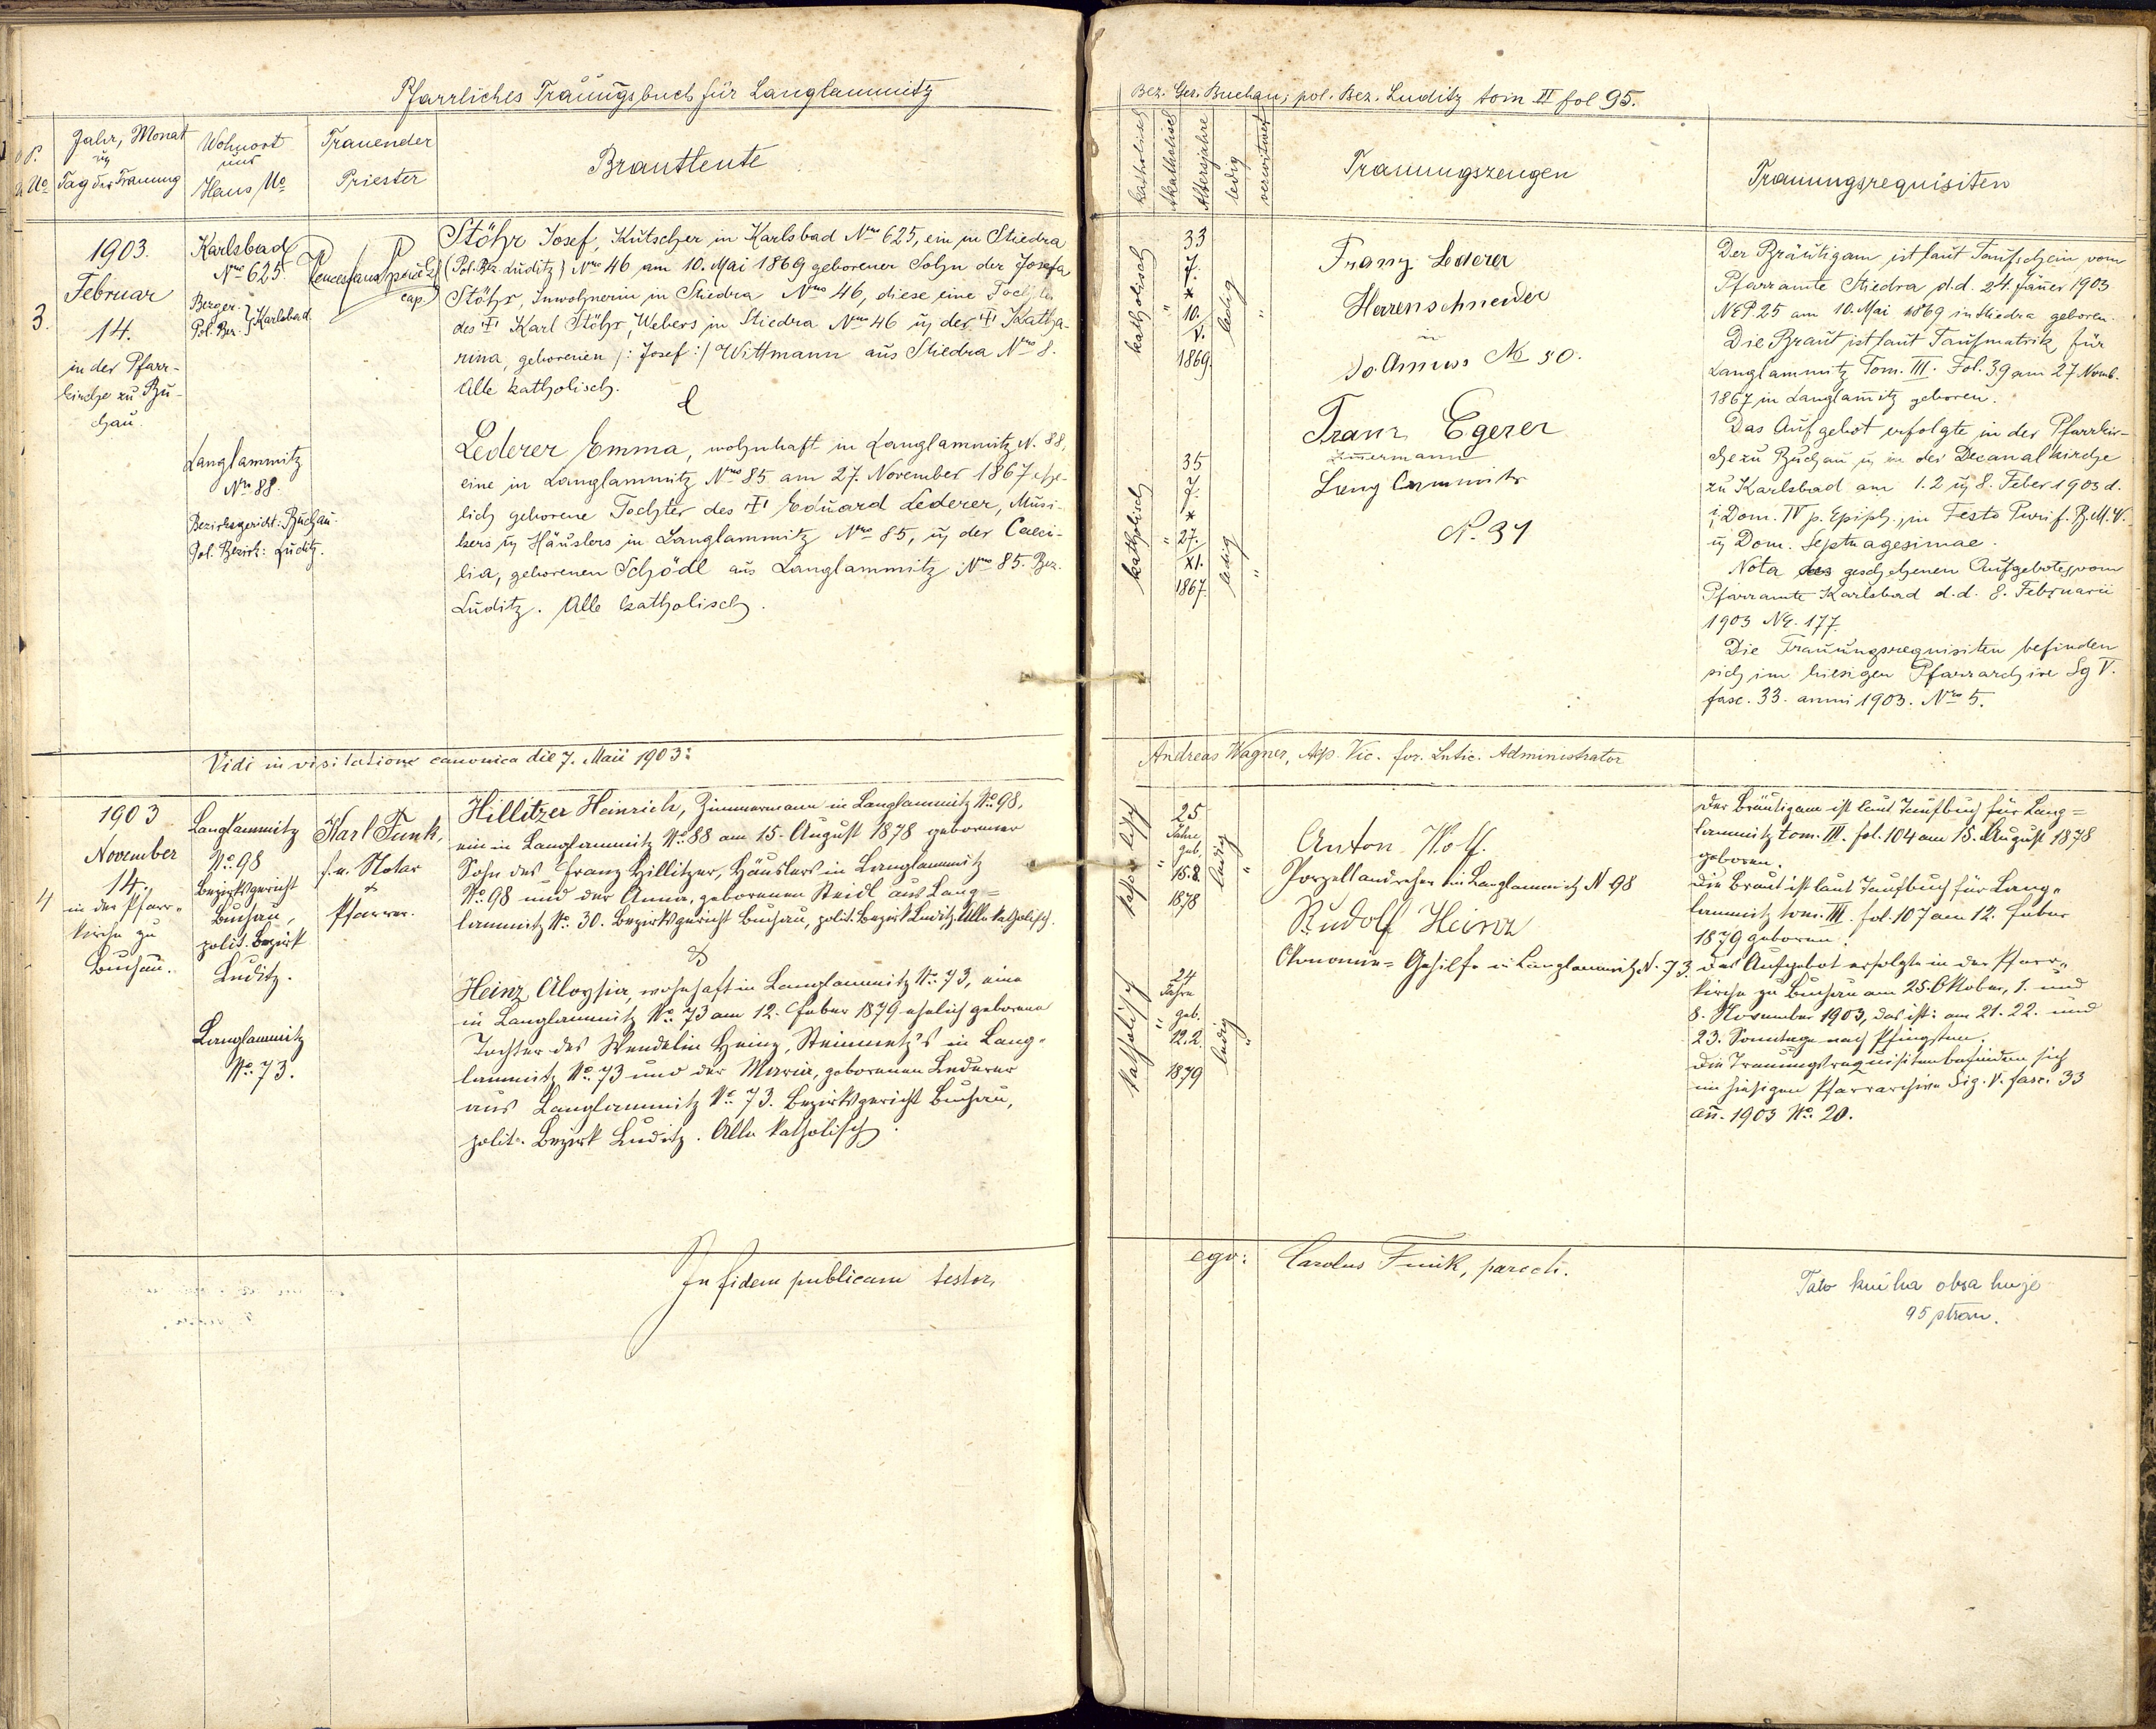 Pfarrliches Trauungsbuch für Langlammitz
Jahr, Monat
u
Tag der Trauung
Wohnort
und
Haus No
Trauender
Priester
Brautleute
3.
1903.
Februar
14.
in der Pfarr-
kirche zu Bu-
chau.
Karlsbad
Nro 625.
Pol. Bez. } Karlsbad
Langlammitz
Nro 88.
Bezirksgericht: Buchau.
Pol. Bezirk: Luditz.
cap.
Stöhr Josef, Kutscher in Karlsbad Nro 625, ein in Stiedra
(Pol. Bez. Luditz) Nro 46 am 10. Mai 1869 geborener Sohn der Josefa
Stöhr, Inwohnerin in Stiedra Nro 46, diese eine Tochter
des † Karl Stöhr, Webers in Stiedra Nro 46 u der † Katha-
rina, geborenen /: Josef :/ Wittmann aus Stiedra Nro 8.
Alle katholisch.
&
Lederer Emma, wohnhaft in Langlammitz N. 88,
eine in Langlammitz Nro 85 am 27. November 1867 ehe-
lich geborene Tochter des † Eduard Lederer, Musi-
kers u Häuslers in Langlammitz Nro 85, u der Caeci-
lia, geborenen Schödl aus Langlammitz Nro 85. Bez.
Luditz. Alle katholisch.
Vidi in visitatione canonica die 7. Maii 1903:
4
1903
November
14.
in der Pfarr-
kirche zu
Buchau.
Langlammitz
No. 98
Bezirksgericht
Buchau,
polit. Bezirk
Luditz.
Langlammitz
No. 73.
Karl Funk,
f. e. Notar
&
Pfarrer.
Hillitzer Heinrich, Zimmermann in Langlammitz No. 98,
ein in Langlammitz No. 88 am 15. August 1878 geborener
Sohn des Franz Hillitzer, Häuslers in Langlammitz
No. 98 und der Anna, geborenen Steidl aus Lang=
lammitz No. 30. Bezirksgericht Buchau, polit. Bezirk Luditz. Alle katholisch.
&
Heinz Aloysia, wohnhaft in Langlammitz No. 73, eine
in Langlammitz No. 73 am 12. Feber 1879 ehelich geborene
Tochter des Wendelin Heinz, Steinmetz's in Lang-
lammitz No. 73 und der Maria, geborenen Lederer
aus Langlammitz No. 73. Bezirksgericht Buchau,
polit. Bezirk Luditz. Alle katholisch.
In fidem publicam testor,
Bez. Ger. Buchau; pol. Bez. Luditz tom II fol 95.
katholisch
Akatholisch
Altersjahre
ledig
verwitwet
Trauungszeugen
Trauungsrequisiten
katholisch
"
33
J.
*
10.
V.
1869.
ledig
"
Franz Lederer
Herrenschneider
in
No 50.
Franz Egerer
Zimmermann
Lang Lammitz
N. 31
katholisch
"
35
J.
*
27.
XI.
1867.
ledig
"
Der Bräutigam ist laut Taufschein vom
Pfarramte Stiedra d.d. 24. Jäner 1903
NEP. 25 am 10. Mai 1869 in Stiedra geboren.
Die Braut ist laut Taufmatrik für
Langlammitz Tom. III. Fol. 39 am 27 Novmb.
1867 in Langlamitz geboren.
Das Aufgebot erfolgte in der Pfarrkir-
che zu Buchau u in der Decanalkirche
zu Karlsbad am 1. 2 u 8. Feber 1903 d.
i. Dom. IV p. Epiph., in Festo Purif. B.M.V.
u Dom. Septuagesimae.
Nota des geschehenen Aufgebotes vom
Pfarramte Karlsbad d.d. 8. Februarii
1903 NE. 177.
Die Trauungsrequisiten befinden
sich im hiesigen Pfarrarchive Sg V.
fasc. 33. anni 1903. Nro 5.
Andreas Wagner, Vic. for. Lutic. Administrator
katholisch
"
25
Jahre
geb.
15.8.
1878
ledig
"
Anton Wolf.
Porzellandreher in Langlammitz N 98
Rudolf Heinz
Ökonomie=Gehilfe in Langlammitz N. 73.
katholisch
"
24
Jahre
geb.
12.2.
1879
ledig
"
Der Bräutigam ist laut Taufbuch für Lang=
lammitz tom. III. fol. 104 am 15. August 1878
geboren.
Die Braut ist laut Taufbuch für Lang-
lammitz tom. III. fol. 107 am 12. Feber
1879 geboren.
Das Aufgebot erfolgte in der Pfarr-
kirche zu Buchau am 25. Oktober, 1. und
8. November 1903, das ist: am 21. 22. und
23. Sonntage nach Pfingsten.
Die Trauungsrequisiten befinden sich
im hiesigen Pfarrarchive Sig. V. fasc. 33
an. 1903 No. 20.
ego: Carolus Funk, paroch.
Tato kniha obsahuje
95 stran.